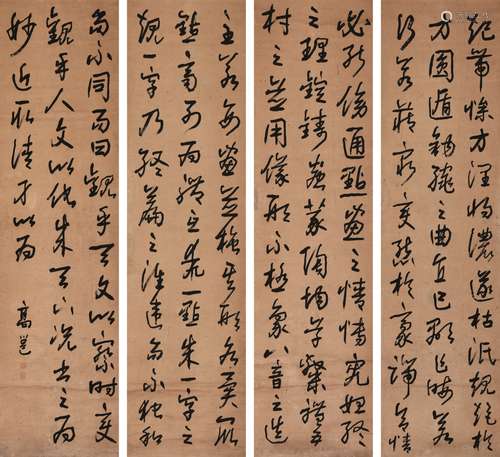 帶燥方潤將濃遂枯泯規矩於
方圓遁鉤繩之曲直乍顯乍晦若
行若藏窮變態於豪端合情
必能傍通點畫之情博究始終
之理鎔鑄蟲篆陶均草隸體五
材之並用儀形不極象八音之迭
若數畫並施其形各異眾
點齊列為體互乖一點成一字之
規一字乃終篇之準違而不和
而不同而曰觀乎天文以察時變
觀乎人文以化成天下況書之為
妙近取諸
高